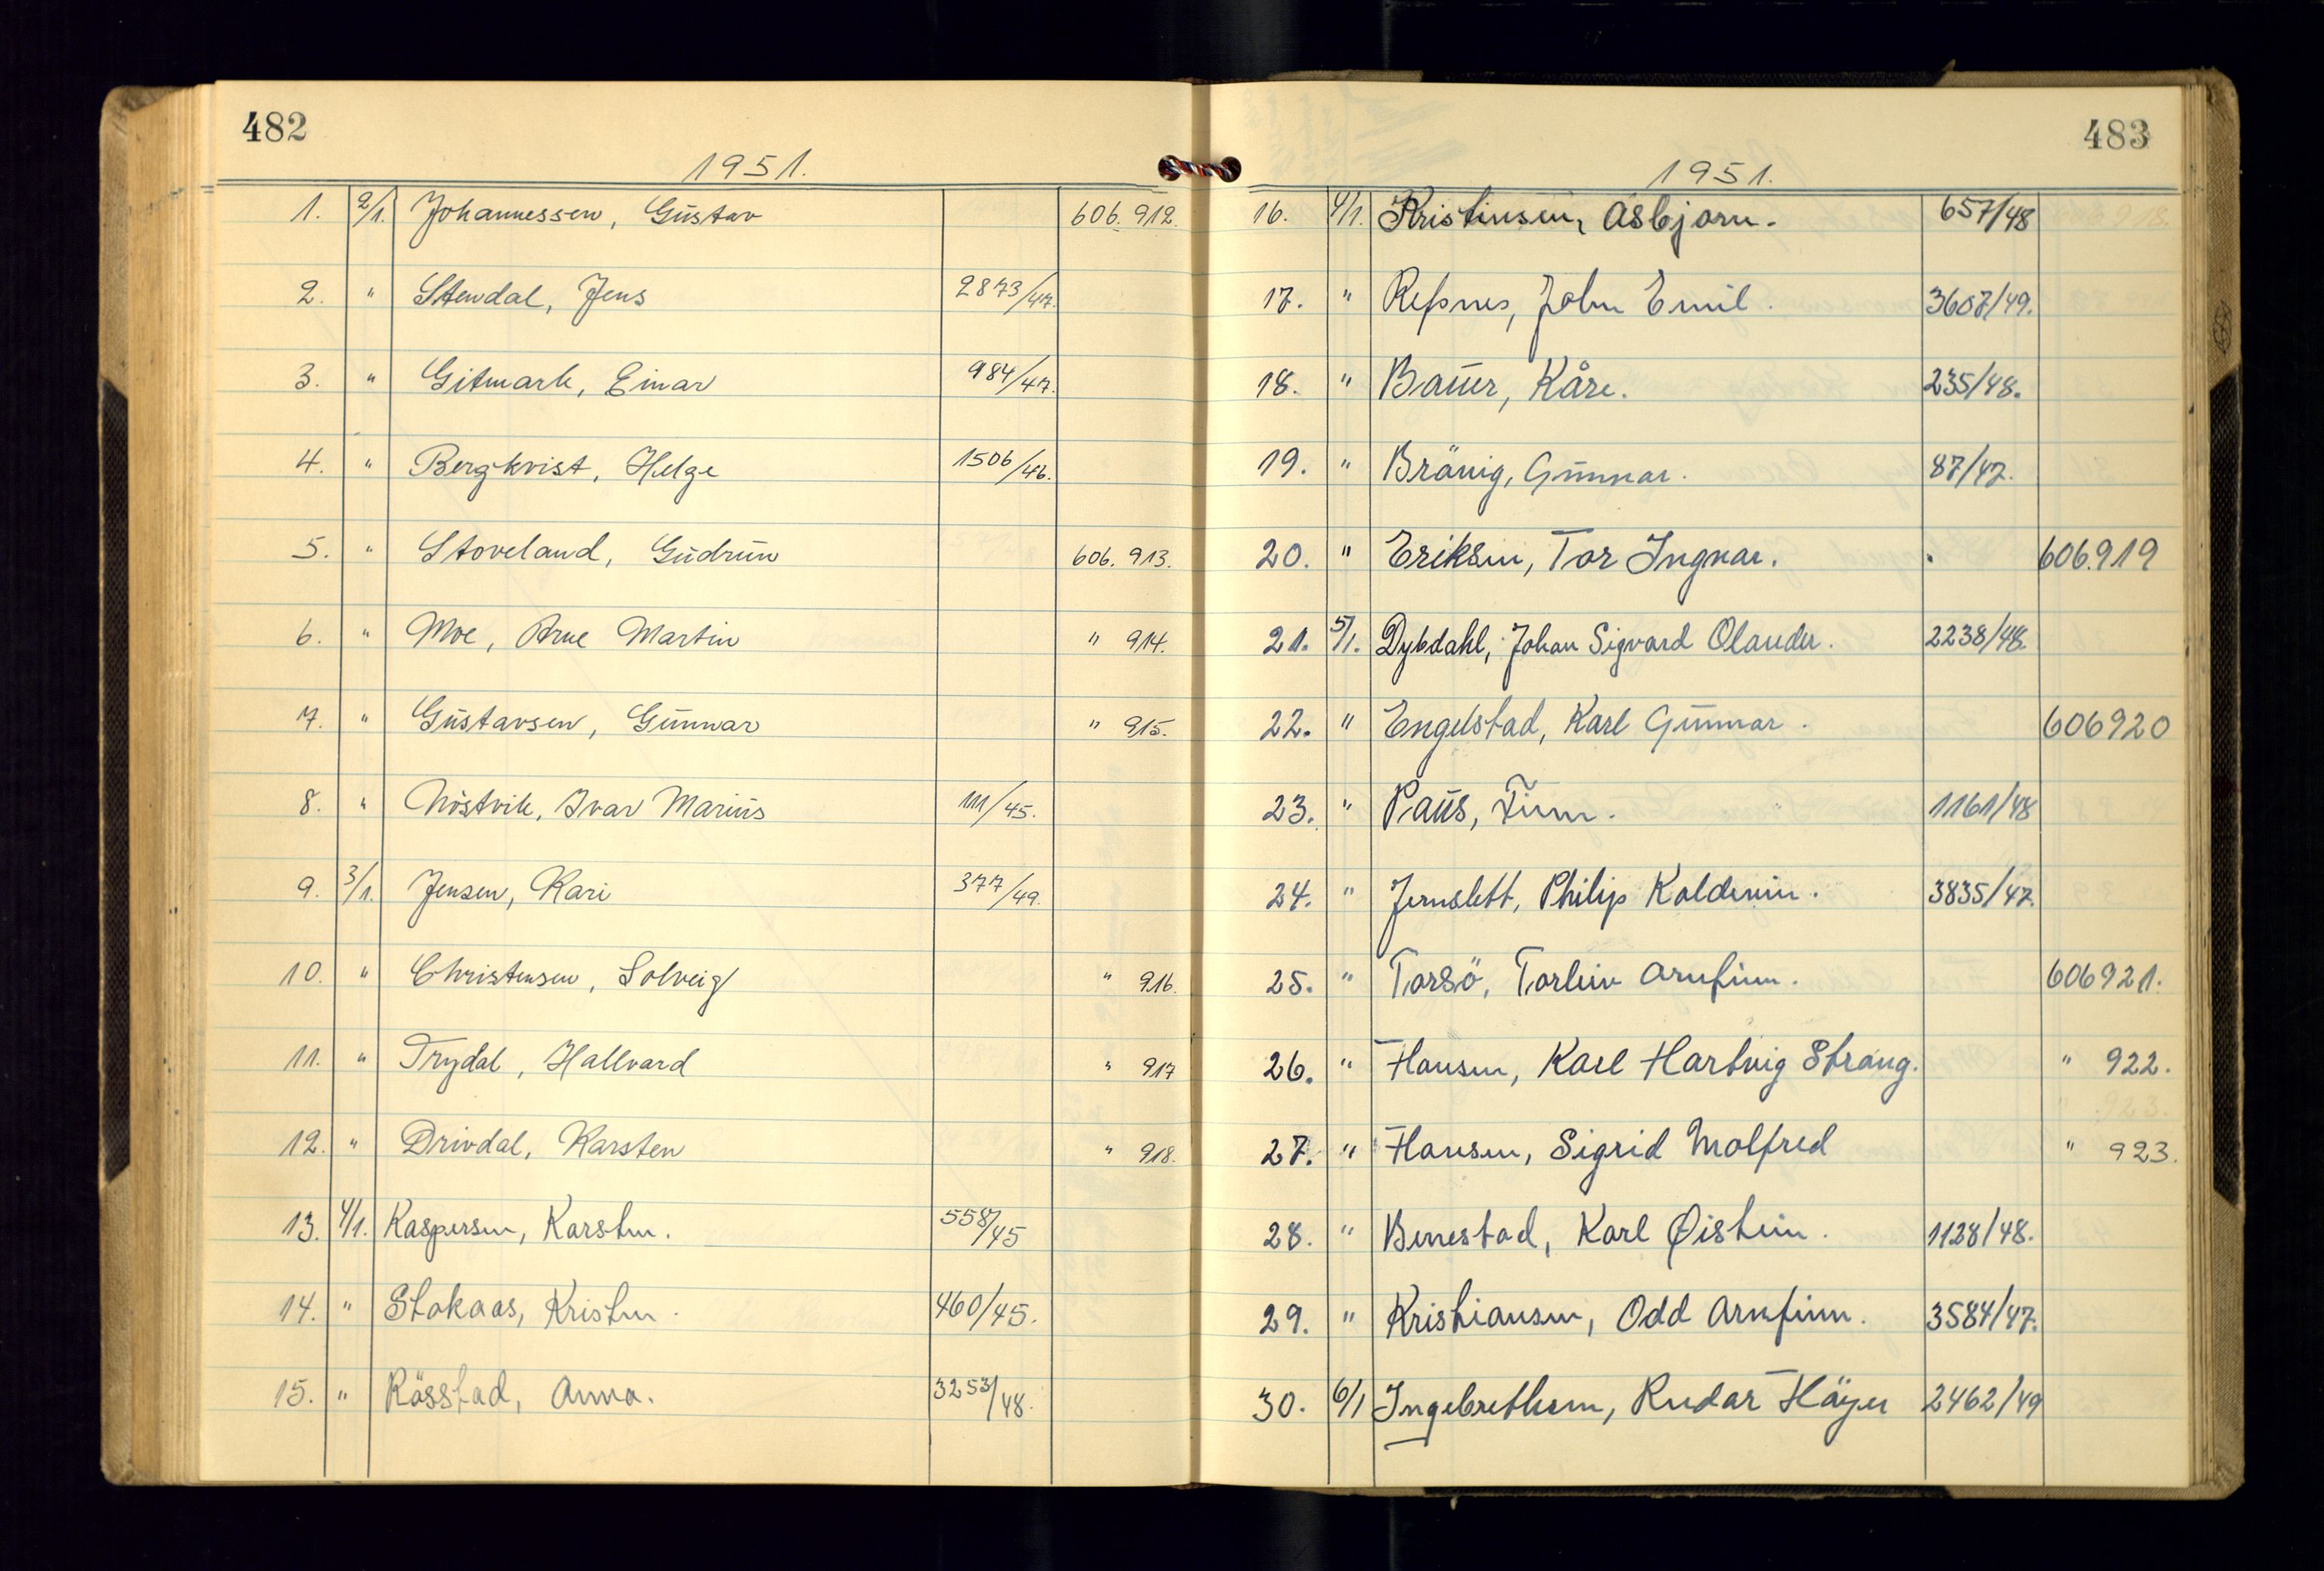 482
1951.
1. 2/1. Johannessen, Gustav 606.912.
2. " Stendal, Jens 2873/47.
3. " Gitmark, Einar 984/47.
4. " Bergkvist, Helge 1506/46.
5. " Stoveland, Gudrun 606.913.
6. " Moe, Arne Martin " 914.
7. " Gustavsen, Gunnar " 915.
8. " Nöstvik, Ivar Marius 111/45.
9. 3/1. Jensen, Kari 377/49.
10. " Christensen, Solveig " 916.
11. " Trydal, Hallvard " 917
12. " Drivdal, Karsten " 918.
13. 4/1. Kaspersen, Karsten. 558/45
14. " Stokaas, Kristen. 460/45.
15. " Rösstad, Anna. 3253/48.
483
1951.
16. 4/1. Kristensen, Asbjørn. 657/48
17. " Refsnes, John Emil. 3607/49.
18. " Bauer, Kåre. 235/48.
19. " Bränig, Gunnar. 87/47.
20. " Eriksen, Tor Ingvar. 606.919
21. 5/1. Dybdahl, Johan Sigvard Olander. 2238/48.
22. " Engelstad, Karl Gunnar. 606920
23. " Paus, Finn. 1161/48
24. " Jernslett, Philip Koldevin. 3835/47.
25. " Torsö, Torleiv Arnfinn. 606921.
26. " Hansen, Karl Hartvig Strang. " 922.
27. " Hansen, Sigrid Molfred " 923.
28. " Benestad, Karl Øistein. 1128/48.
29. " Kristiansen, Odd Arnfinn. 3584/47.
30. 6/1 Ingebrethsen, Reidar Höyer 2462/49